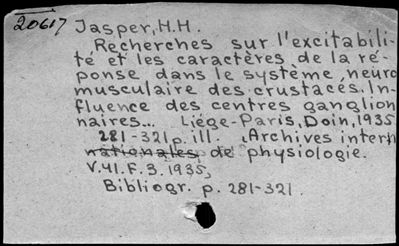 20617 Jasper, H.H.
Recherches sur l'excitabili-
té et les caractères de la ré-
ponse dans le système, neuro
musculaire des crustacés. In-
fluence des centres ganglion
naires... Liége-Paris, Doin, 1935
281-321 p. ill. Archives intern
nationales de physiologie.
V.41. F.3. 1935,
Bibliogr. p. 281-321.